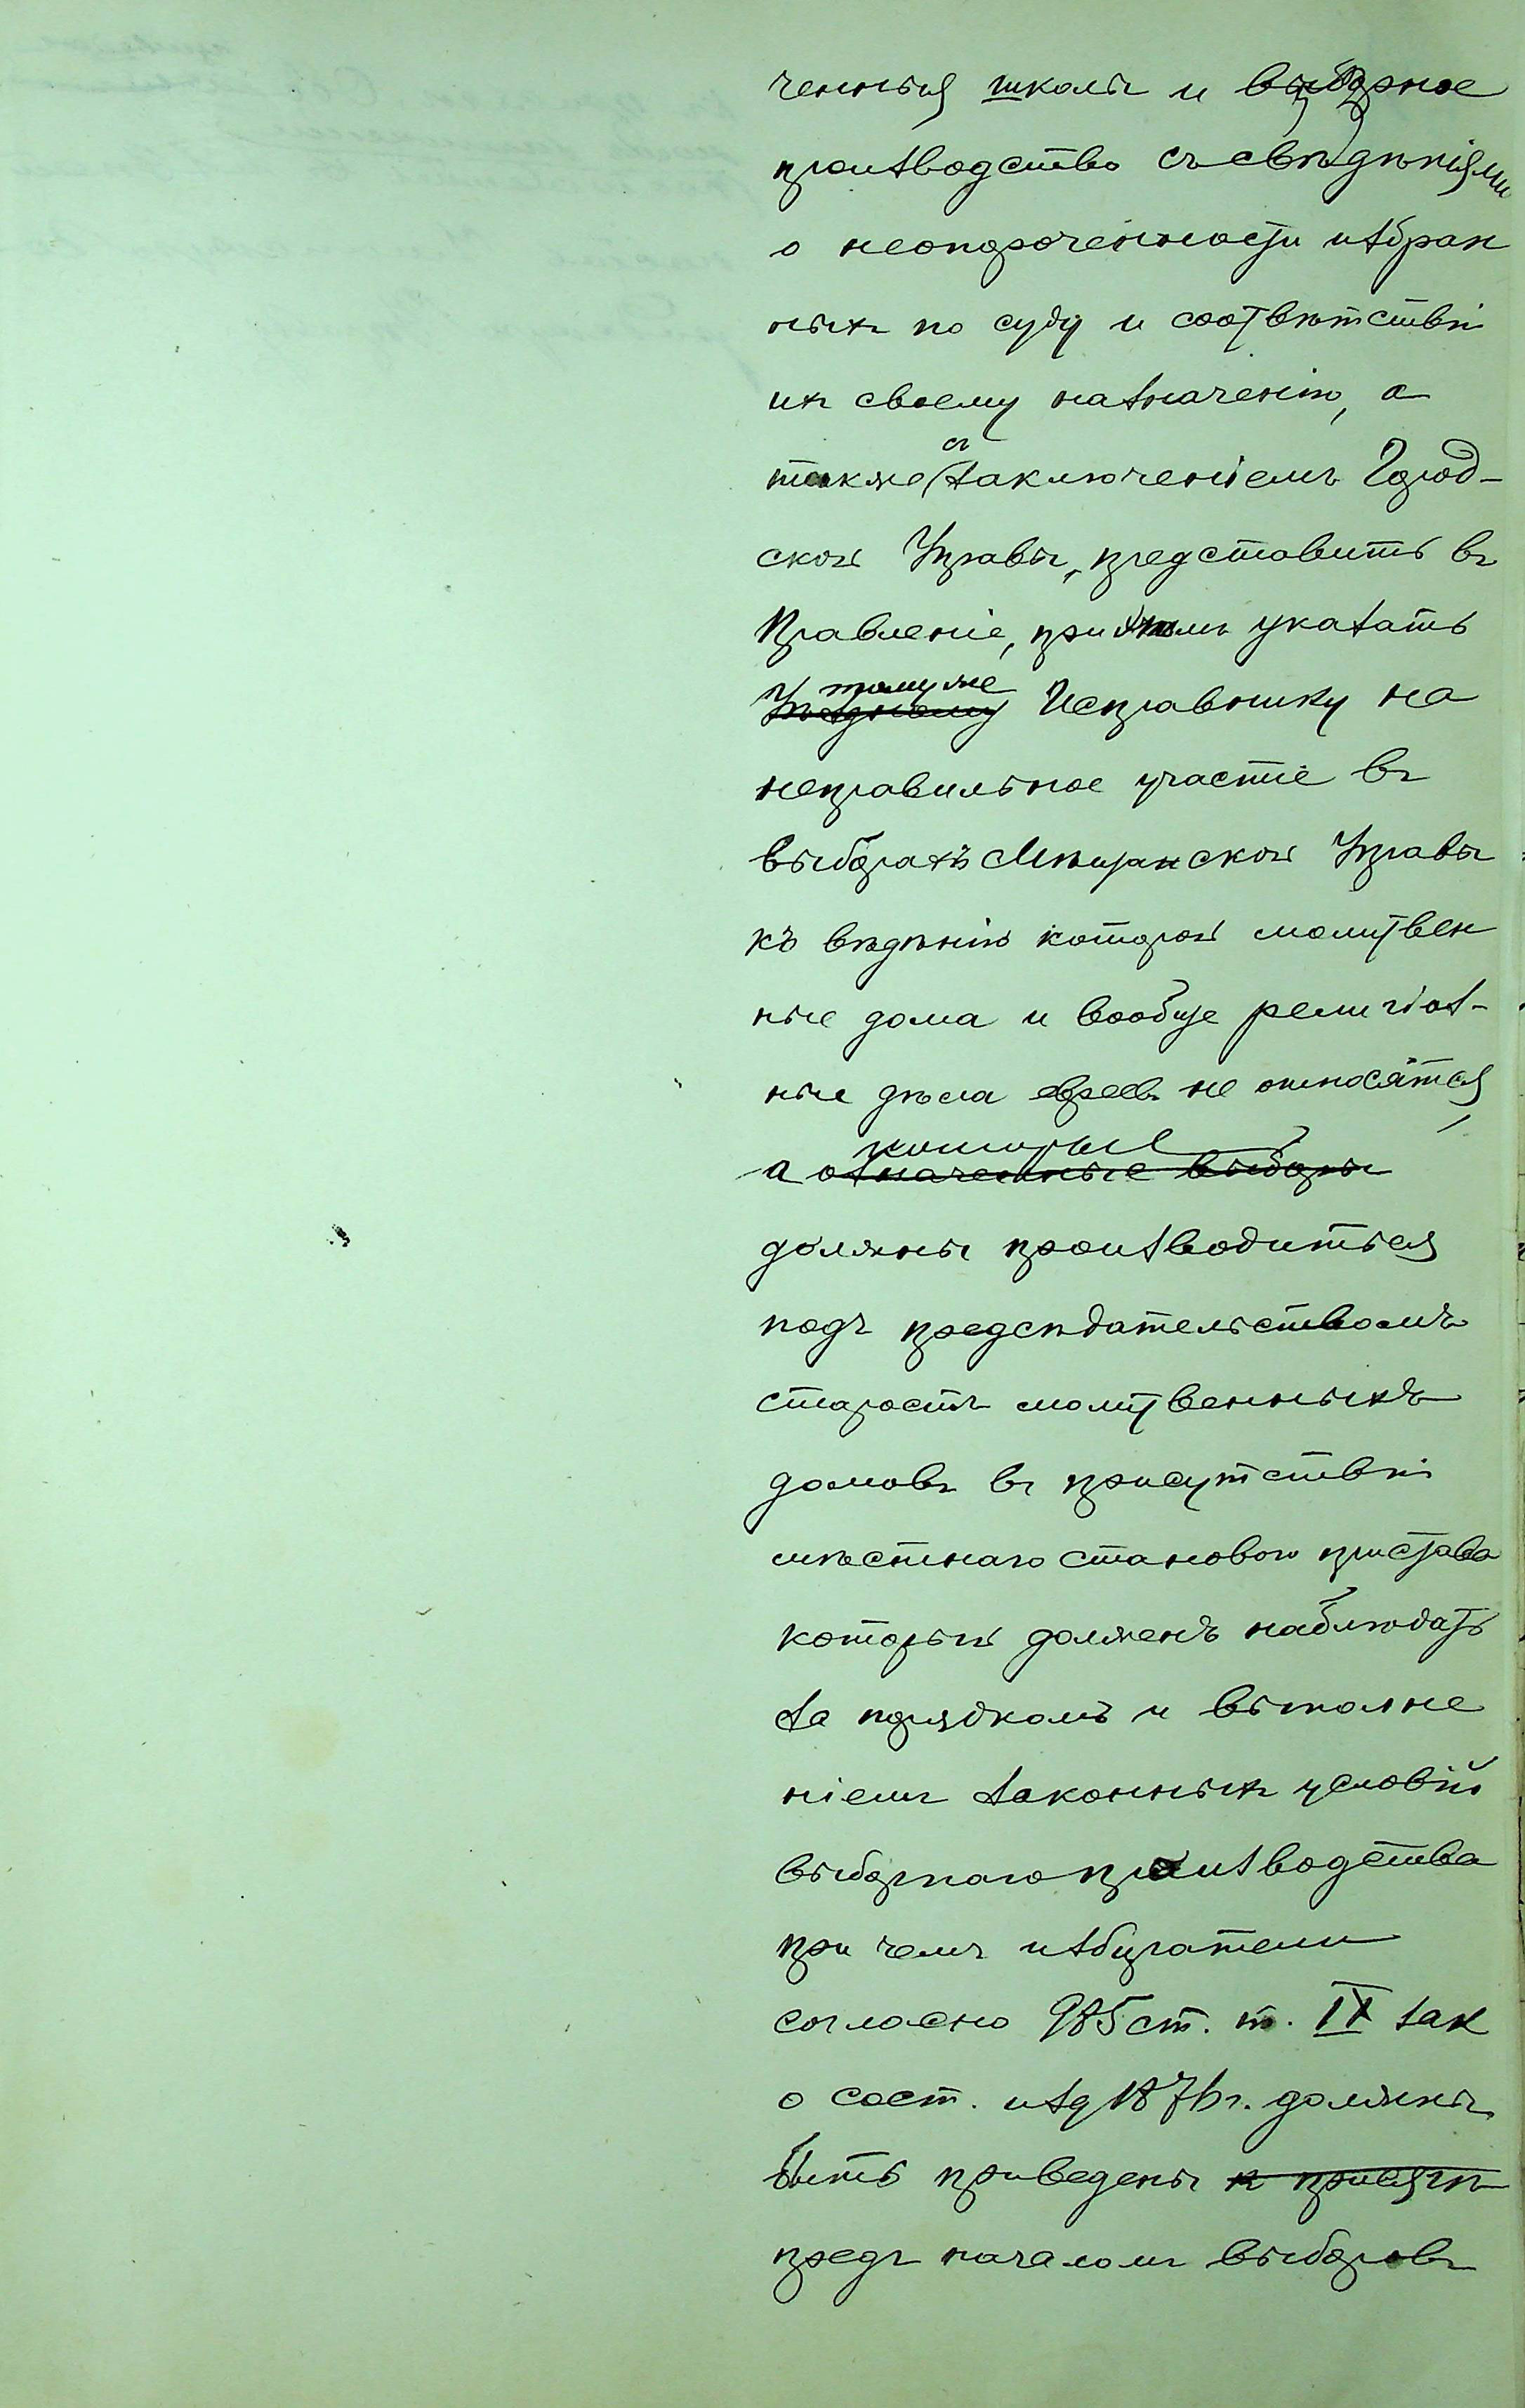 ченныя школы и выборное
производство съ свѣдѣніями
о неопороченности избран
ныхъ по суду и соотвѣтствіи
ихъ своему назначенію, а
также съ заключеніемъ Город-
ской Управы, представить въ
Правленіе, при этомъ указать
Уѣздному тому же Исправнику на
неправильное участіе въ
выборахъ Мѣщанской Управы
къ вѣдѣнію которой молитвен
ные дома и вообще религіоз-
ные дѣла евреевъ не относятся,
а означенные выборы которые
должны производиться
подъ предсѣдательствомъ
старостъ молитвенныхъ
домовъ въ присутствіи
мѣстнаго становаго пристава
который долженъ наблюдать
за порядкомъ и выполне
ніемъ законныхъ условій
выборнаго производства
при чемъ избиратели
согласно 985 ст. т. IX зак
о сост. изд 1876 г. должны
быть приведены къ присягѣ
предъ началомъ выборовъ